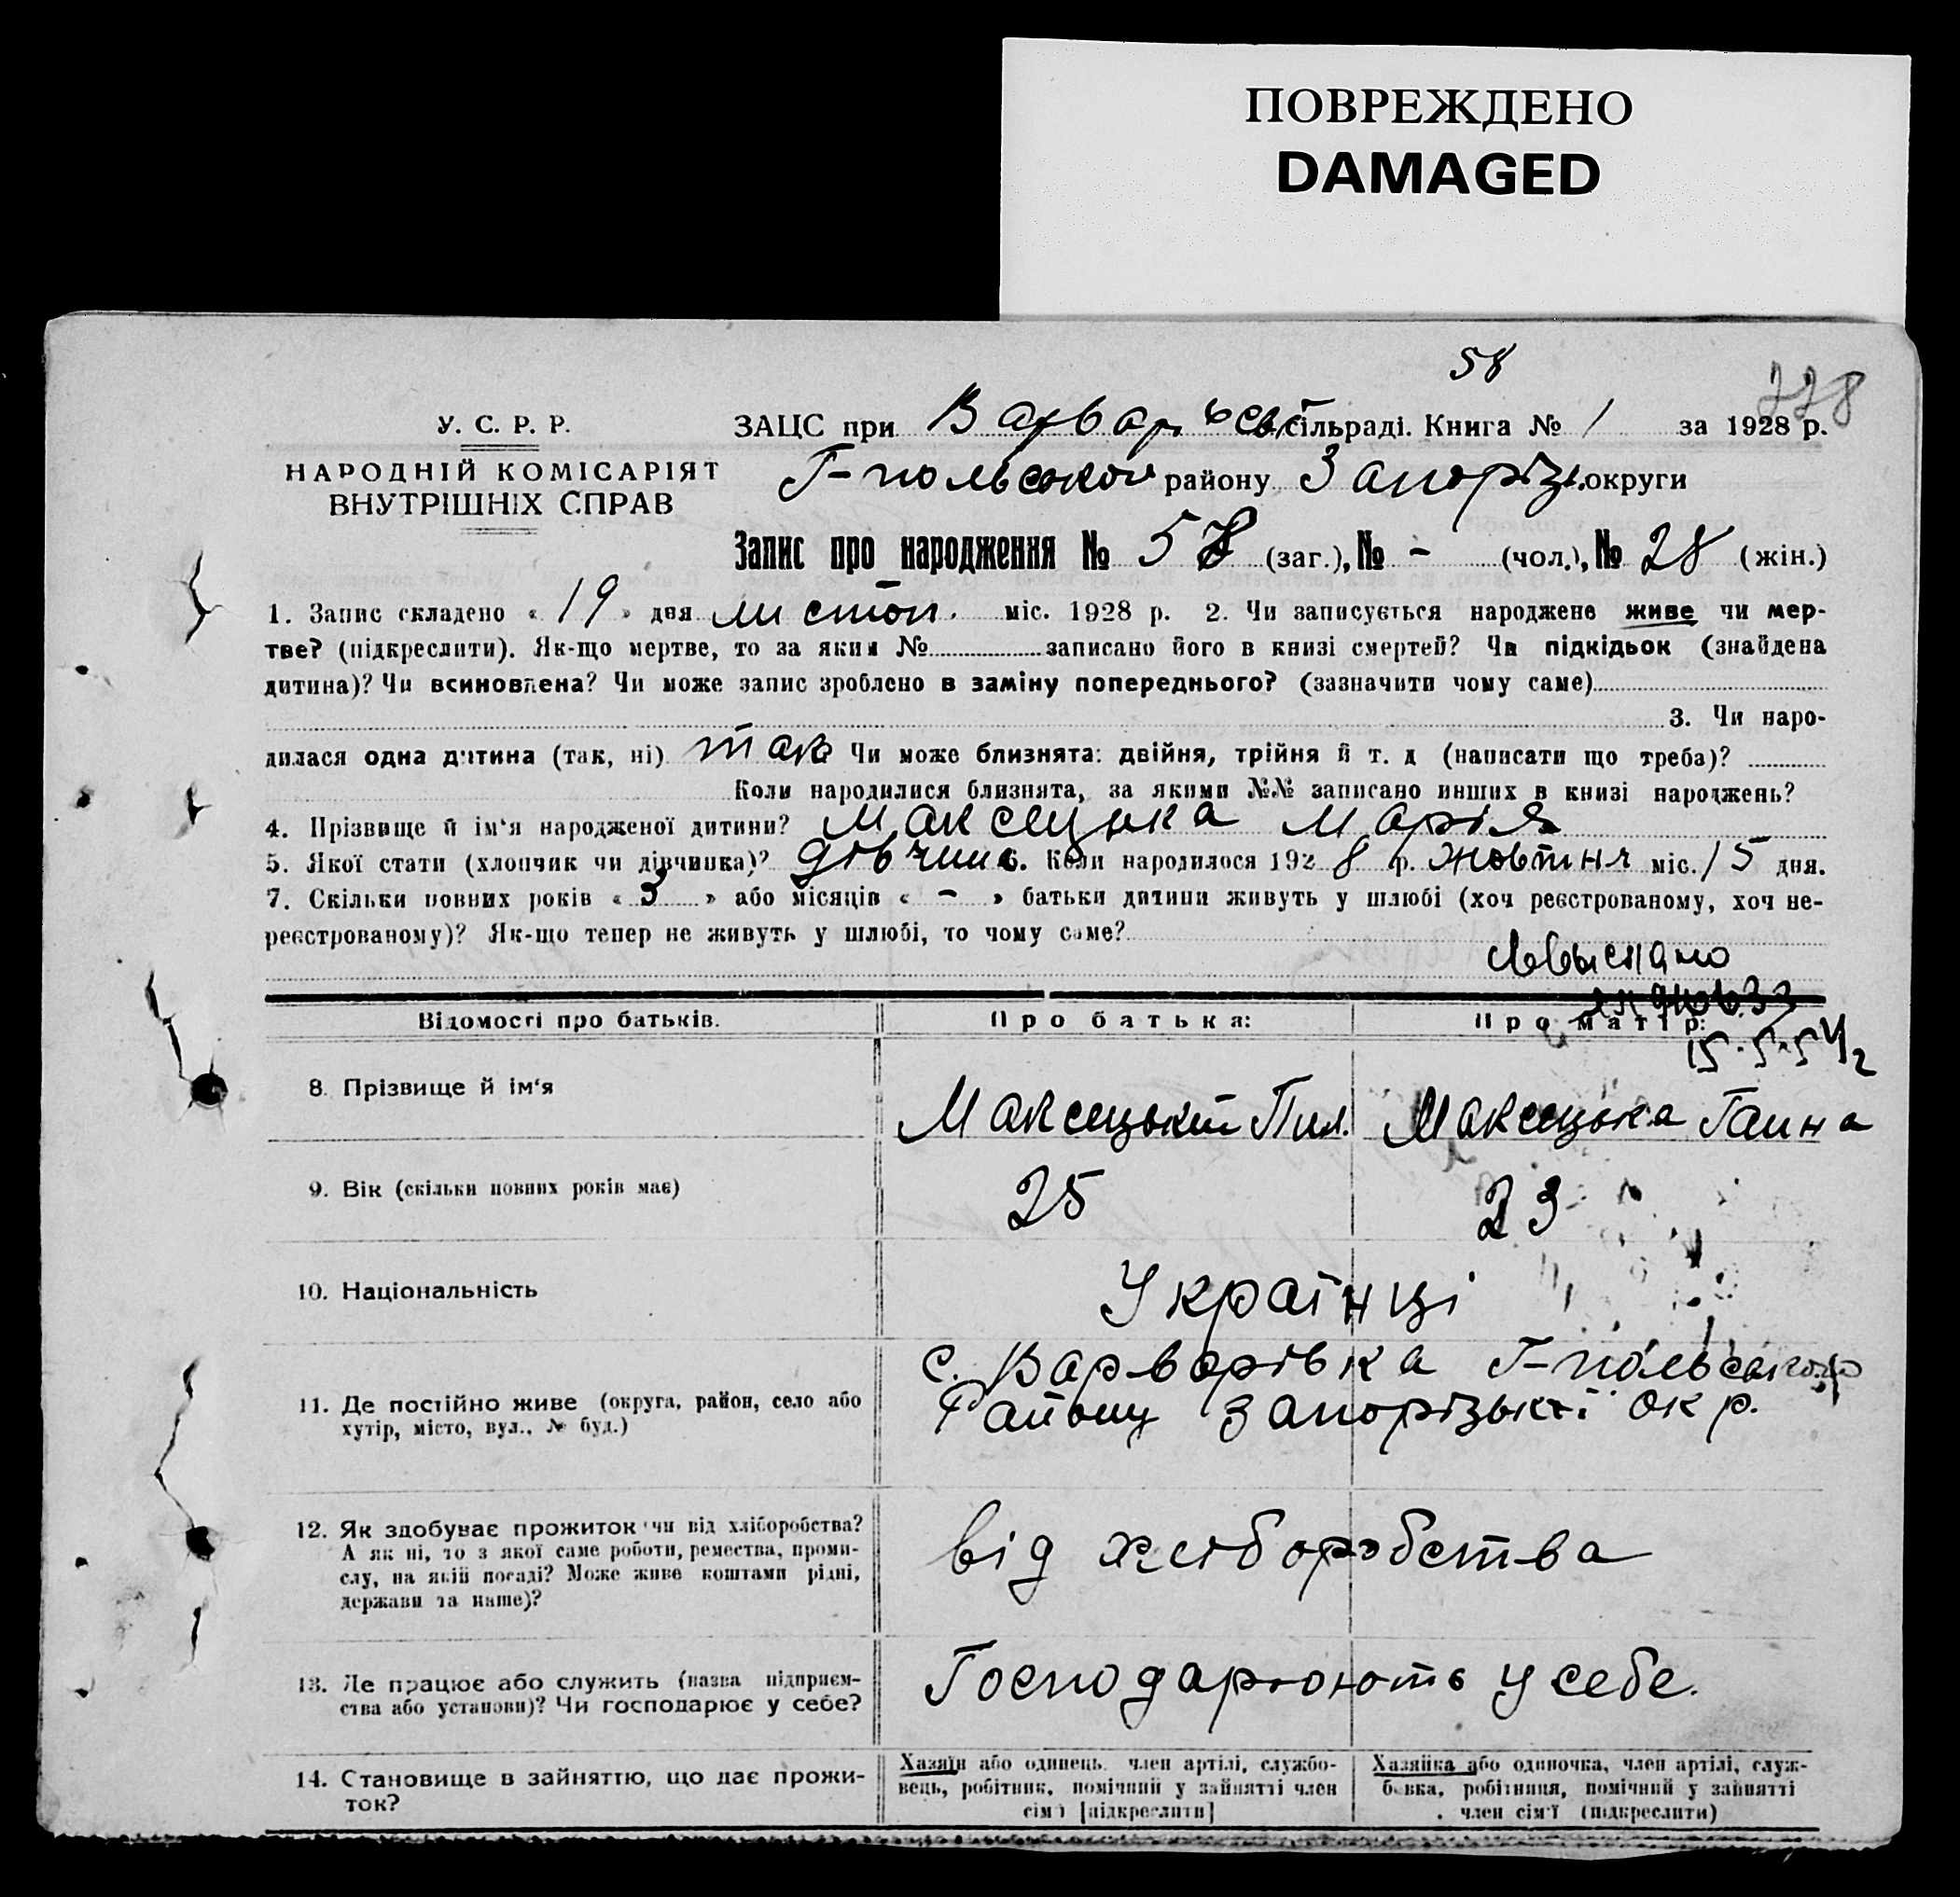 ПОВРЕЖДЕНО
DAMAGED
58
778
У. С. Р. Р.
НАРОДНІЙ КОМІСАРІЯТ
ВНУТРІШНІХ СПРАВ
ЗАЦС при Варварівськ сільраді. Книга № 1 за 1928 р.
Г-польського району Запорізьк. округи
Запис про народження № 58 (заг.), № - (чол.), № 28 (жін.)
1. Запис складено « 19 » дня листоп. міс. 1928 р. 2. Чи записується народжене живе чи мер-
тве? (підкреслити). Як-що мертве, то за яким № записано його в книзі смертей? Чи підкідьок (знайдена
дитина)? Чи всиновлена? Чи може запис зроблено в заміну попереднього? (зазначити чому саме)
3. Чи наро-
дилася одна дитина (так, ні) так Чи може близнята: двійня, трійня й т. д (написати що треба)?
Коли народилися близнята, за якими №№ записано инших в книзі народжень?
4. Прізвище й ім'я народженої дитини? Максецька Марія
5. Якої стати (хлопчик чи дівчинка)? дівчина 6. Коли народилося 1928 р. жовтня міс. 15 дня.
7. Скільки повних років « 3 » або місяців « - » батьки дитини живуть у шлюбі (хоч реєстрованому, хоч не-
реєстрованому)? Як-що тепер не живуть у шлюбі, то чому саме?
15.5.54
Відомості про батьків.
Про батька:
Про матір:
8. Прізвище й ім'я
Максецький Пил.
Максецька Ганна
9. Вік (скільки повних років має)
25
23
10. Національність
Українці
11. Де постійно живе (округа, район, село або
хутір, місто, вул., № буд.)
с. Варварівка Г-польського
Району Запорізької окр.
12. Як здобуває прожиток чи від хліборобства?
А як ні, то з якої саме роботи, ремества, проми-
слу, на якій посаді? Може живе коштами рідні,
держави та инше)?
від хліборобства
13. Де працює або служить (назва підприєм-
ства або установи)? Чи господарює у себе?
Господарюють у себе.
14. Становище в зайняттю, що дає прожи-
ток?
Хазяїн або одинець, член артілі, службо-
вець, робітник, помічний у зайнятті член
сім'ї [підкреслити]
Хазяйка або одиночка, член артілі, служ-
бовка, робітниця, помічний у зайнятті
член сім'ї (підкреслити)